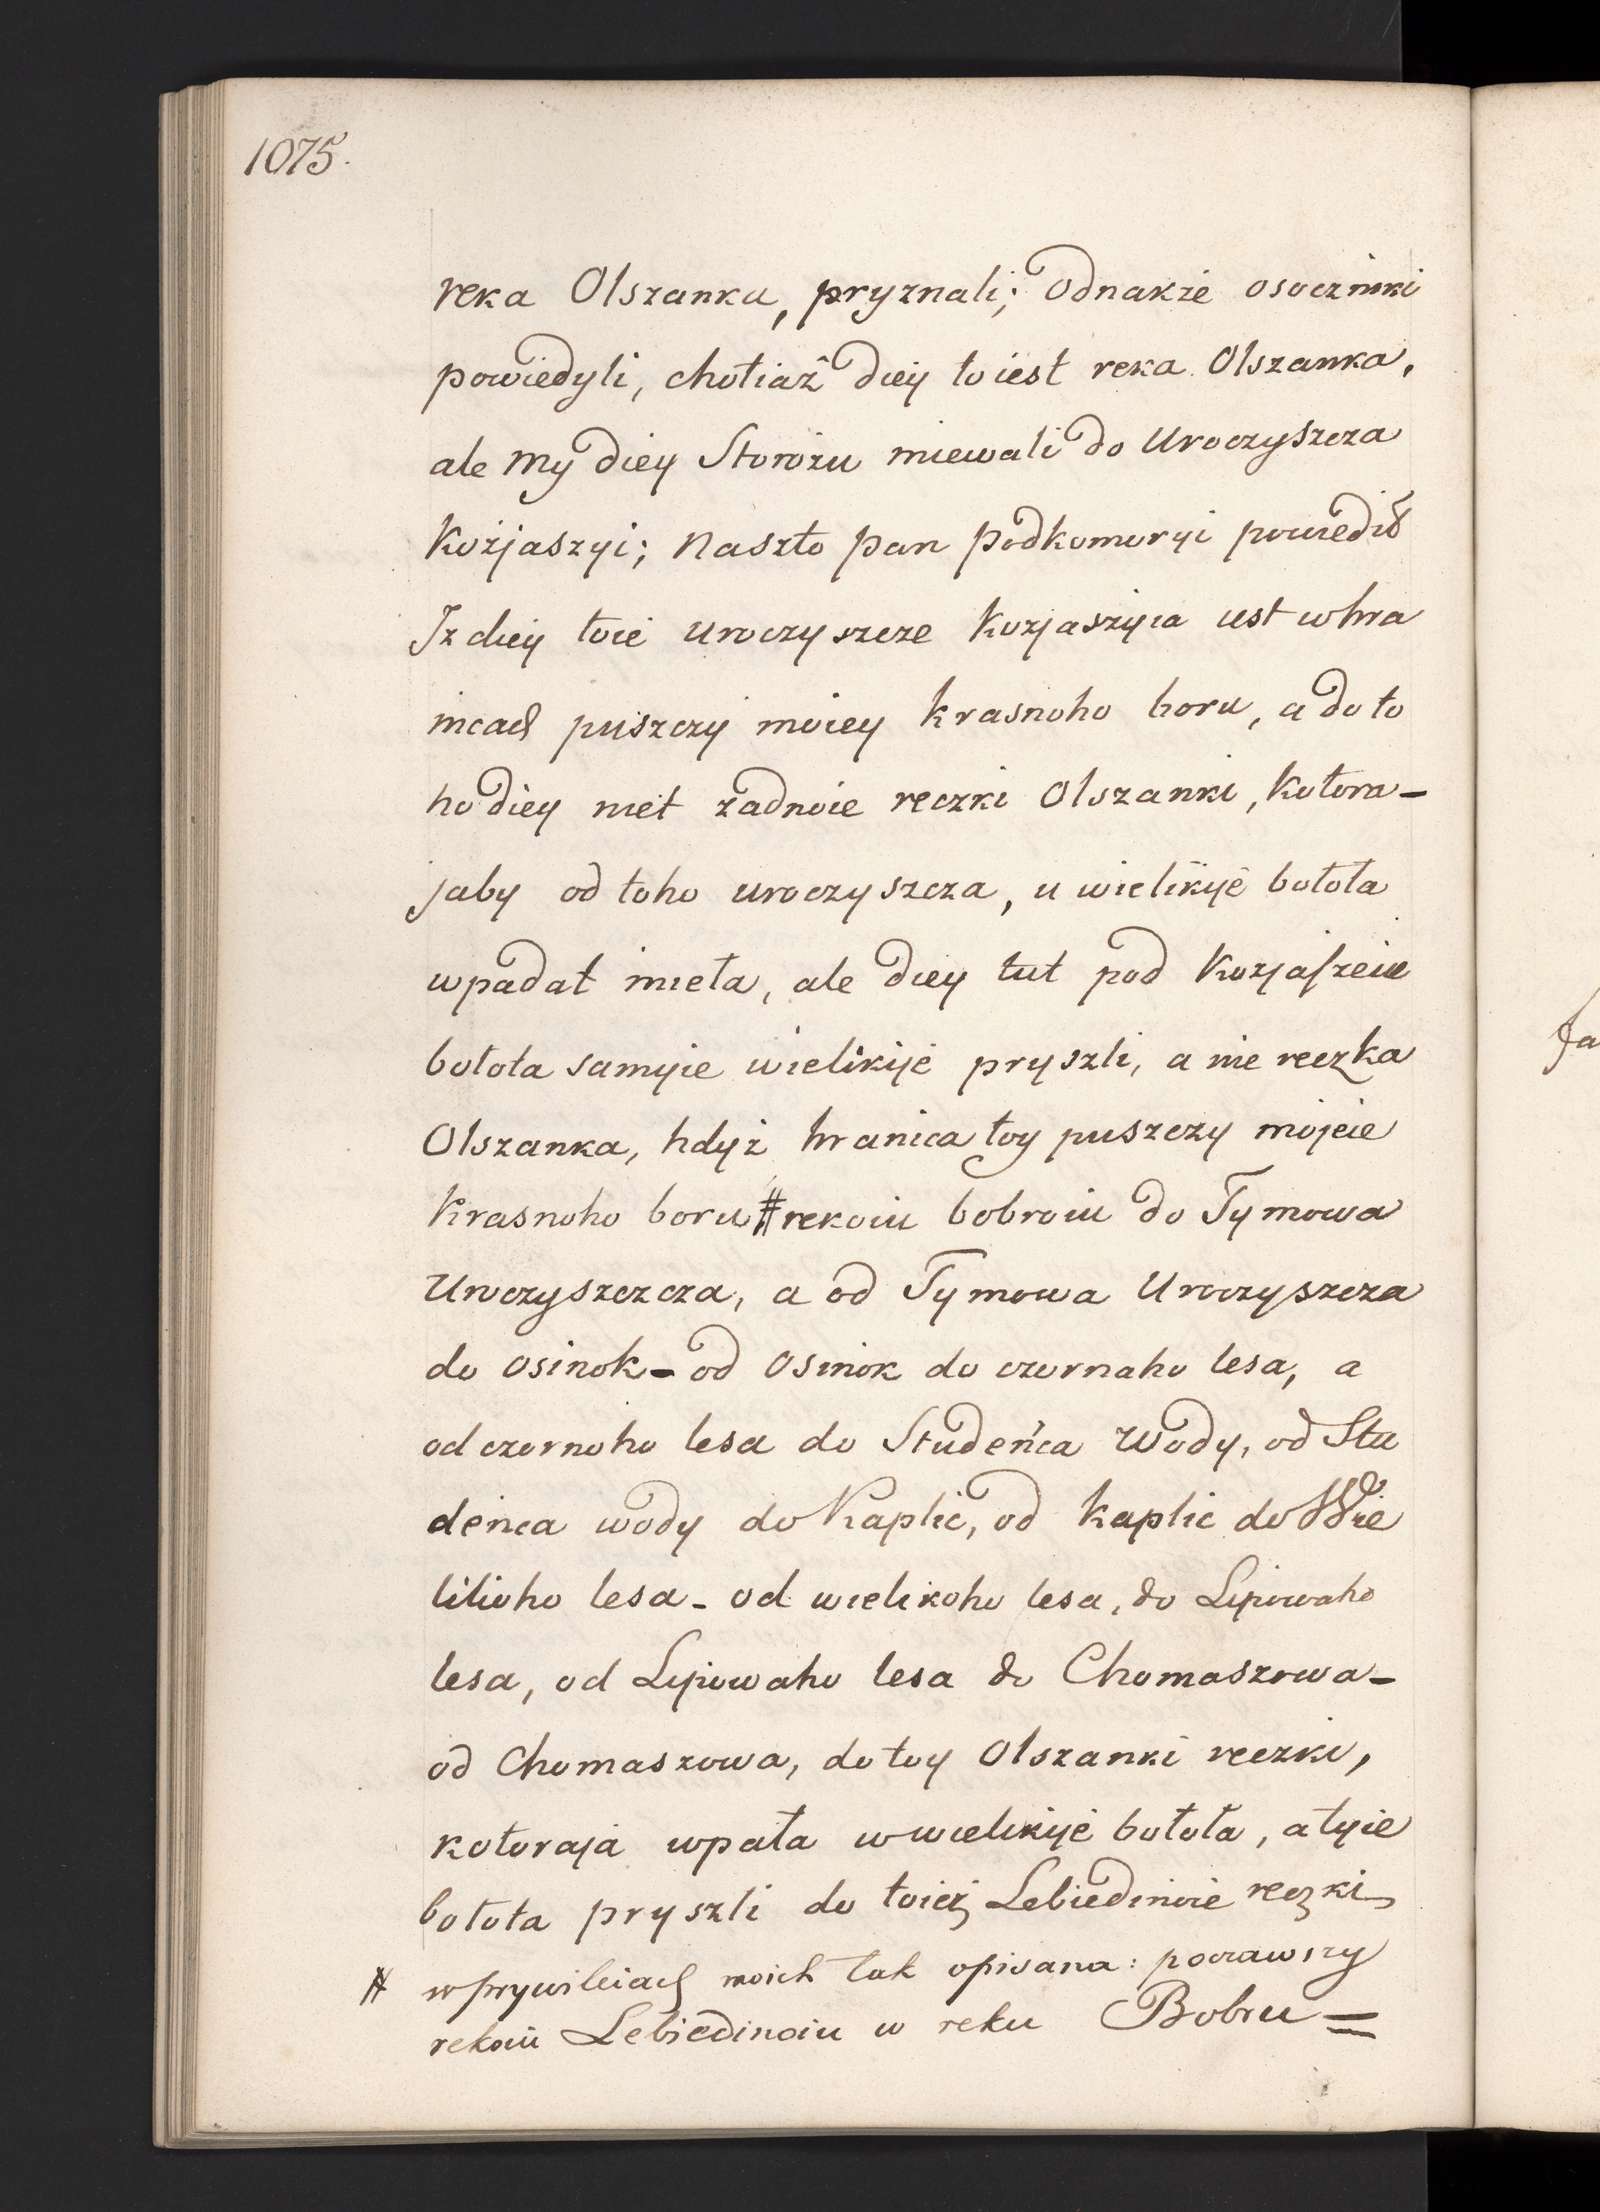 1075.
reka Olszanka, pryznali; odnakże osoczniki
powiedyli, chotiaż diey to iest reka Olszanka,
ale my diey Storożu miewali do Uroczyszcza
Kozjaszyi; Naszto pan podkomoryi powiedił
Iz diey toie uroczyszcze Kozjaszyia iest whra
nicach puszczy moiey krasnoho boru, a do to
ho diey niet żadnoie reczki Olszanki, Kotora-
jaby od toho uroczyszcza, u wielikije bołota
wpadat mieła, ale diey tut pod Kozjaszeiu
bołota samyie wielikije pryszli, a nie reczka
Olszanka, hdyż hranica toy puszczy mojeie
Krasnoho boru # rekoiu bobroiu do Tymowa
Uroczyszczcza, a od Tymowa Uroczyszcza
do osinok - od osinok do czornaho lesa, a
od czornoho lesa do Studeńca Wody, od Stu
deńca wody do Kaplic, od kaplic do Wie
likoho lesa - od wielikoho lesa, do Lipowaho
lesa, od Lipowaho lesa do Chomaszowa -
od Chomaszowa, do toy Olszanki reczki,
kotoraja wpała w wielikije bołota, a tyie
bołota pryszli do toież Lebiedinoie reczki
# w prywileiach moich tak opisana: poczawszy
rekoiu Lebiedinoiu w reku Bobru =
fa